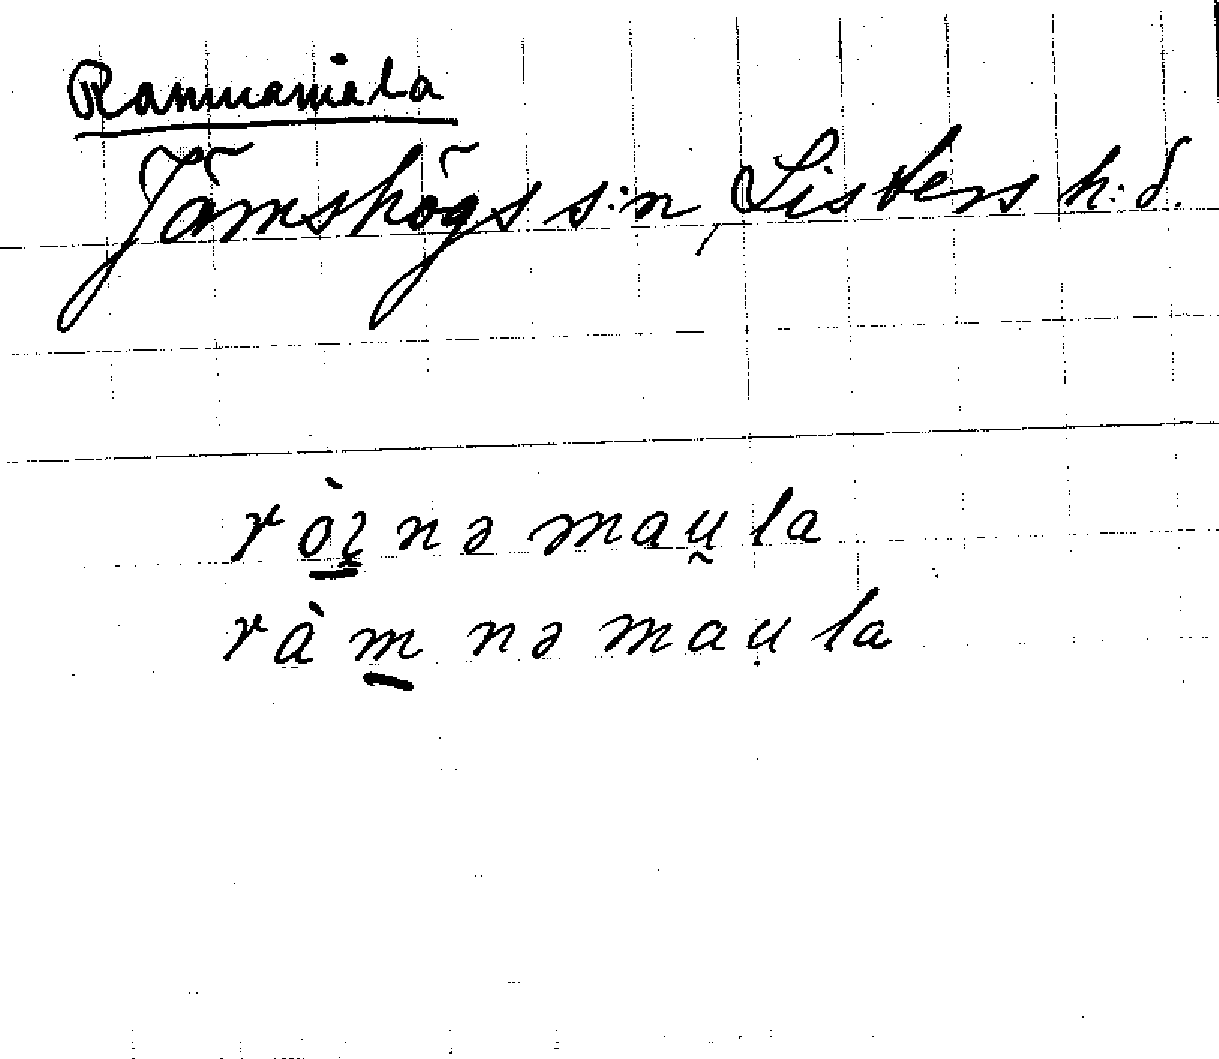 Rannamåla
Jämshögs s:n, Listers h:d.
ròi̯nə mau̯la
ràm nə maṳla